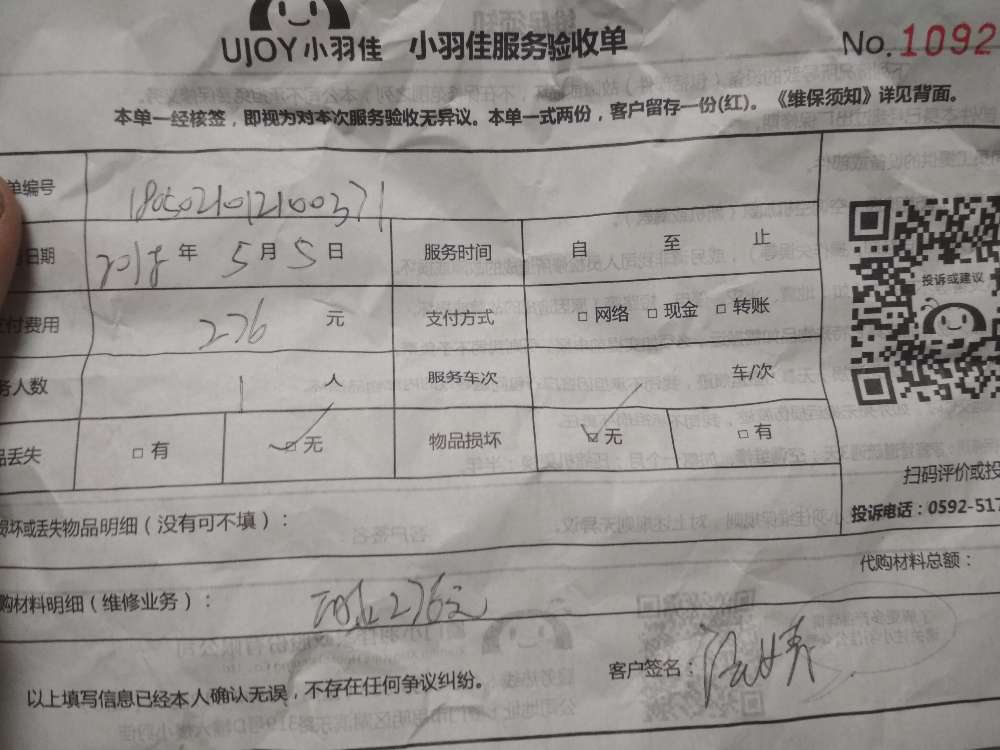 UJOY小羽佳 小羽佳服务验收单 No.1092
本单一经核签，即视为对本次服务验收无异议。本单一式两份，客户留存一份(红)。《维保须知》详见背面。
单编号 1805021012100371
日期 2018 年 5 月 5 日 服务时间 自 至 止
付费用 276 元 支付方式 □ 网络 □ 现金 □ 转账
务人数 1 人 服务车次 车/次
品丢失 □ 有 □ 无 物品损坏 □ 无 □ 有
投诉或建议
扫码评价或投
投诉电话：0592-517
损坏或丢失物品明细（没有可不填）：
代购材料总额：
购材料明细（维修业务）： 276元
以上填写信息已经本人确认无误，不存在任何争议纠纷。 客户签名：